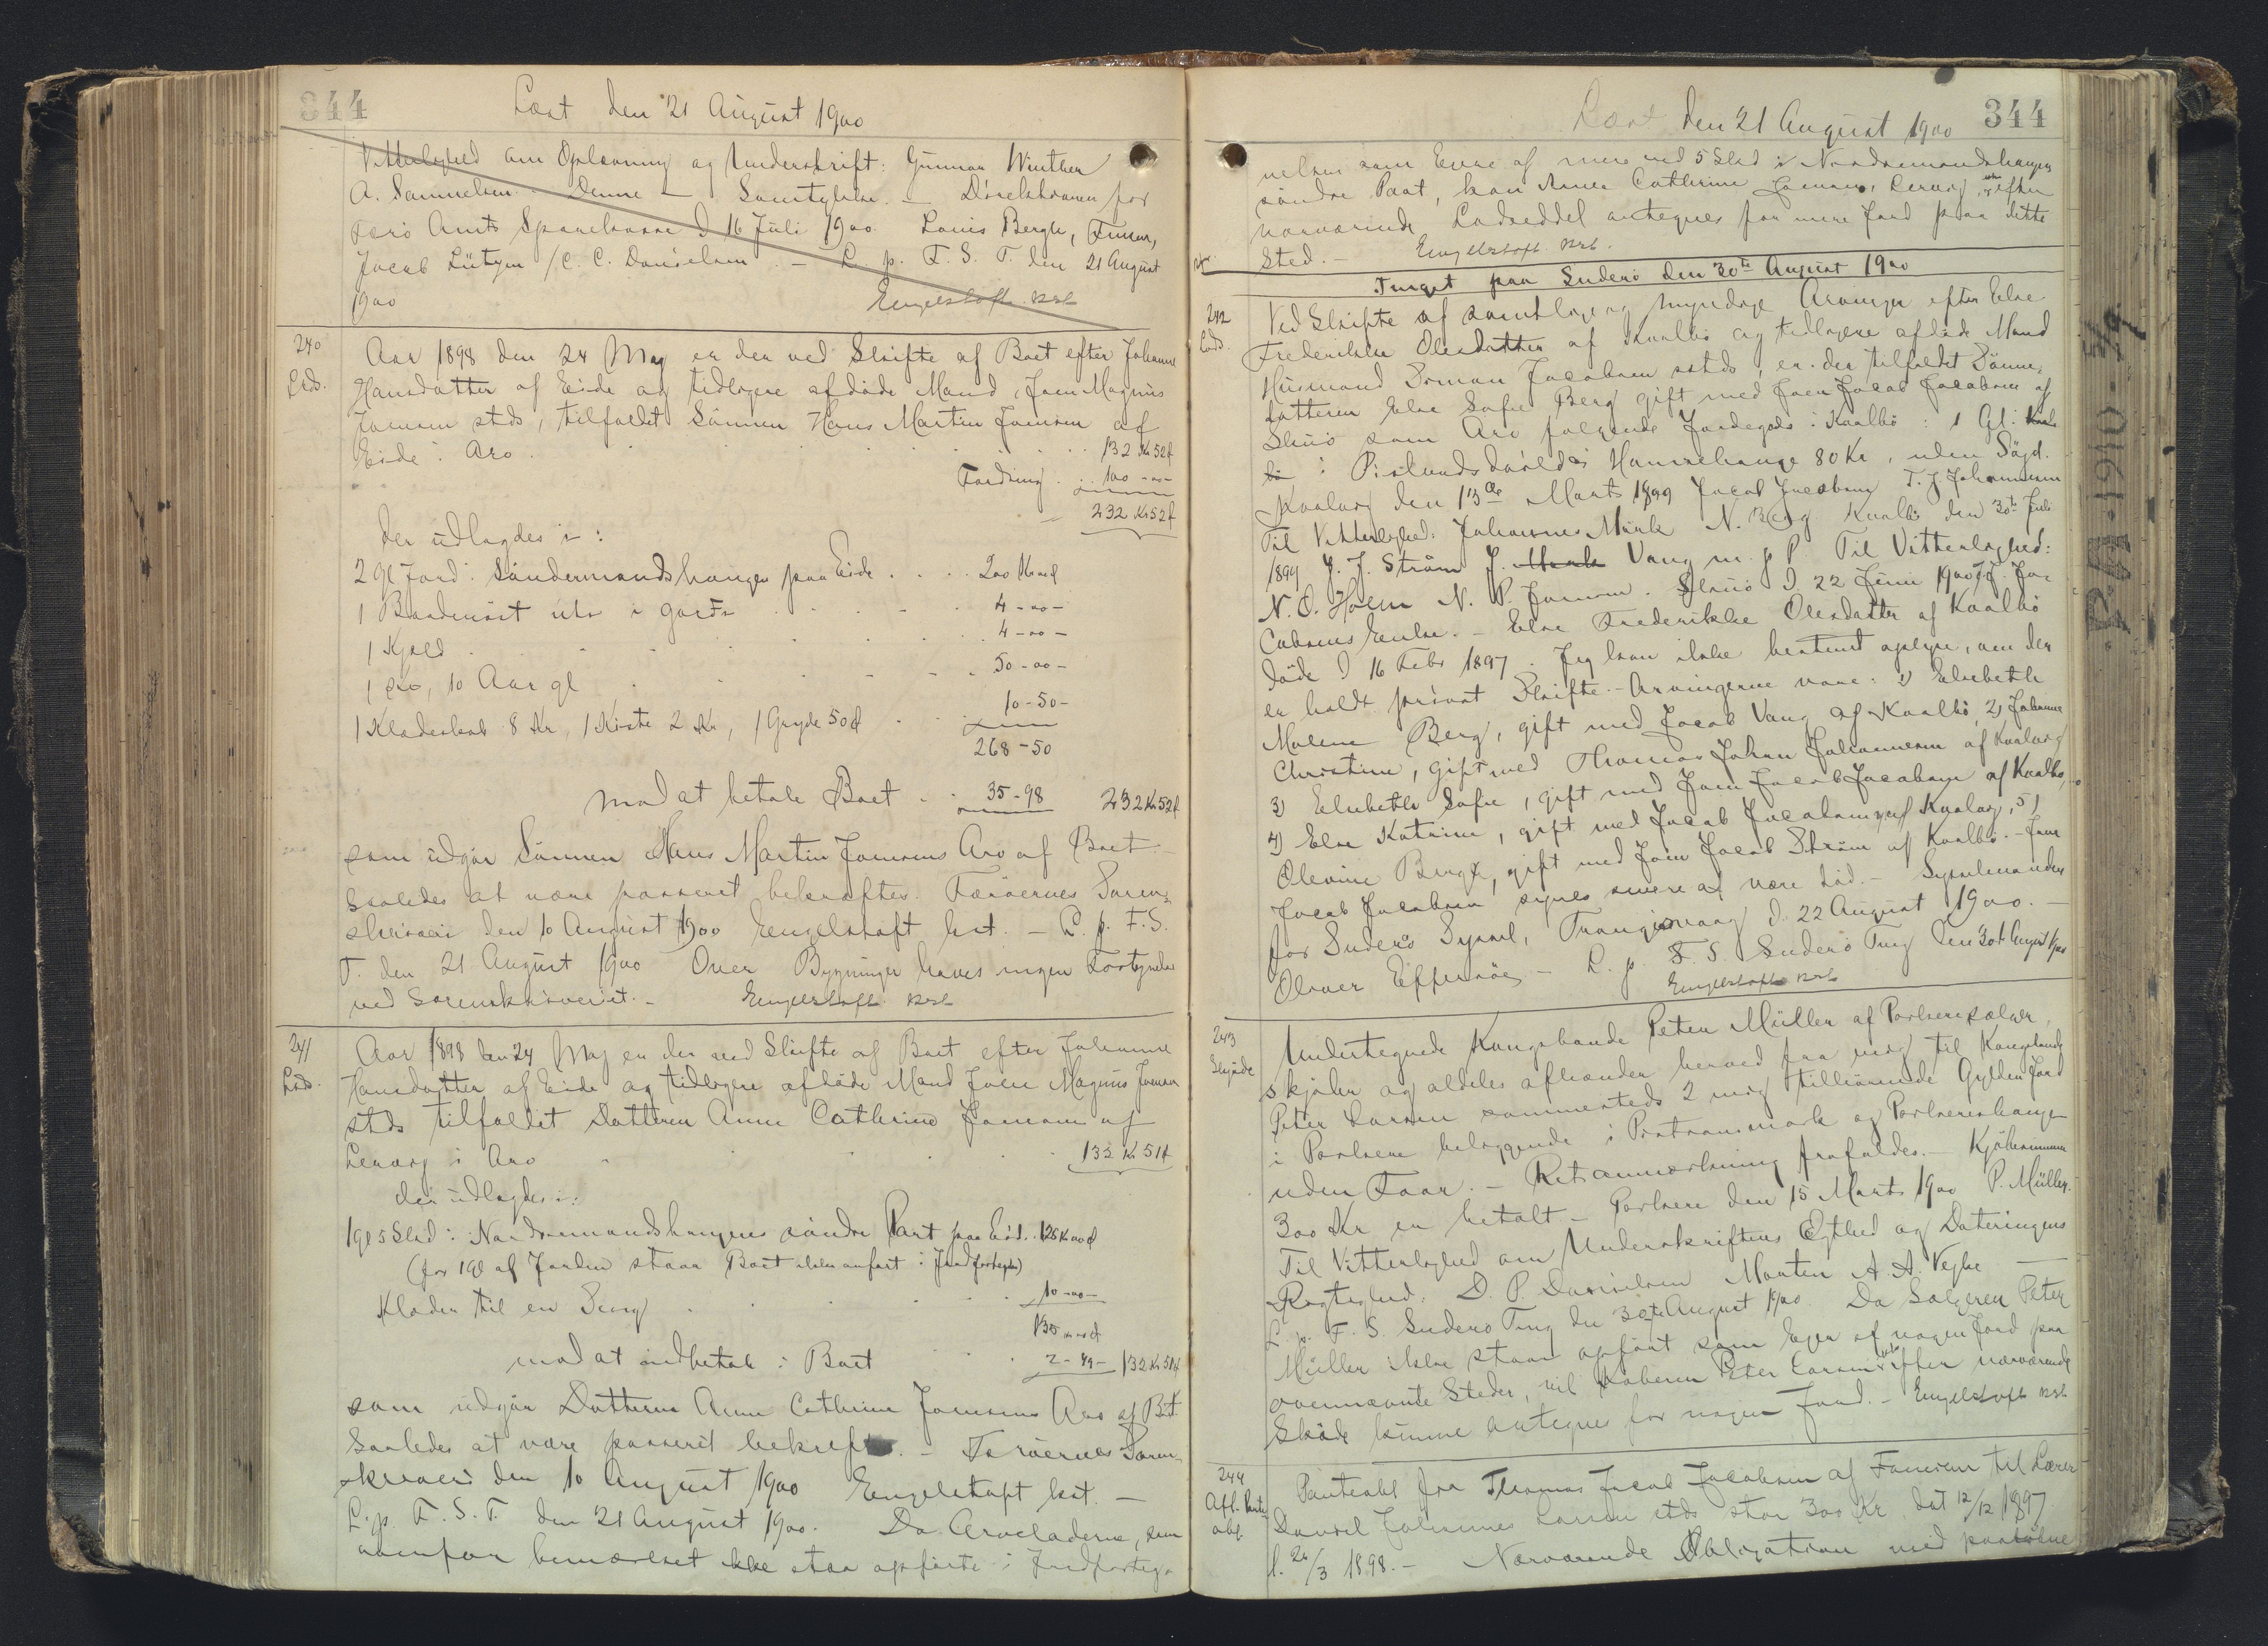 344
Læst den 21 August 1900
Vitterlighed om Oplæsning og Underskrift: Gunnar Winther
A. Samuelsen. Denne — Samtykke — Direktionen for
Færø Amts Sparekasse D 16 Juli 1900. Louis Bergh,
Jacob Lützen / C. C. Danielsen. — L. p. F. S. T. den 21 August
1900 Engelstoft kst
240
Lods.
Aar 1898 den 24 Maj er der ved Skifte af Boet efter Johanne
Hansdatter af Eide og tidligere afdøde Mand, Joen Magnus
Joensen stds, tilfaldet Sønnen Hans Martin Joensen af
Eide i Arv . . . 132 Kr 52 f
Fordring . . 100 - 00 -
232 Kr 52 f
der udlagdes i :
2 Gl Jord i Søndermandshaugen paa Eide . . . . 200 Kr 00 f
1 . . . 4 - 00 -
1 . . . 4 - 00 -
1 Ko, 10 Aar gl . . . 50 - 00 -
1 Klædeskab 8 Kr, 1 Kiste 2 Kr, 1 Gryde 50 f . . 10 - 50 -
268 - 50
mod at betale Boet . . 35 - 98 232 Kr 52 f
som udgør Sønnen Hans Martin Joensens Arv af Boet. —
Saaledes at være passeret bekræftes. Færøernes Soren-
skriveri den 10 August 1900 Engelstoft kst. — L. p. F. S.
T. den 21 August 1900 Over Bygninger haves ingen Fortegnelse
ved Sorenskriveriet. — Engelstoft kst
241
Lods.
Aar 1898 den 24 Maj er der ved Skifte af Boet efter Johanne
Hansdatter af Eide og tidligere afdøde Mand Joen Magnus Joensen
stds tilfaldet Datteren Anne Cathrine Joensen af
Lervig i Arv . . . 132 Kr 51 f
der udlagdes i :
1 gl 5 Skd i Nordremandshaugens søndre Part paa Eide . . 125 Kr 00 f
(for 1 gl af Jorden staar Boet ikke anført i Jordfortegn)
Klæder til en Seng . . . 10 - 00 -
135 - 00 f
mod at indbetale i Boet . . 2 - 49 - 132 Kr 51 f
som udgør Datteren Anne Cathrine Joensens Arv af Boet.
Saaledes at være passeret bekræftes. — Færøernes Soren-
skriveri den 10 August 1900 Engelstoft kst. —
L. p. F. S. T. den 21 August 1900. Da Arveladerne, som
ovenfor bemærket ikke staa opførte i Jordforteg-
Læst den 21 August 1900 344
nelsen som Eiere af mere end 5 Skd i Nordremandshaugens
søndre Part, kan Anne Cathrine Joensen, Lervig, ikke efter
nærværende Lodseddel antegnes for mere Jord paa dette
Sted. — Engelstoft kst.
Tinget paa Suderø den 30te August 1900
242
Lods.
Ved Skifte af samtlige og myndige Arvinger efter Else
Frederikke Olesdatter af Kvalbø og tidligere afdøde Mand
Husmand Joen Jacobsen stds, er der tilfaldet Sønne-
datteren Else Sofie Berg gift med Joen Jacob Jacobsen af
Skuø som Arv følgende Jordegods i Kvalbø : 1 Gl i
80 Kr, uden Søjd.
Kvalvig den 13de Marts 1899 Jacob Jacobsen T. J. Johannesen
Til Vitterlighed: Johannes Mørk N. Berg Kvalbø den 30te Juli
1899 J. J. Strøm J. Vang m. p. P. Til Vitterlighed:
N. O. Holm N. P. Joensen. Skuø D 22 Juni 1900 J. J. Ja-
cobsens Enke. — Else Frederikke Olesdatter af Kvalbø
døde D 16 Febr 1897. Jeg kan ikke bestemt oplyse, om der
er holdt privat Skifte. — Arvingerne vare: 1) Elsebeth
Malene Berg, gift med Jacob Vang af Kvalbø, 2) Johanne
Christine, gift med Thomas Johan Johannesen af Kvalvig
3) Elsebeth Sofie, gift med Joen Jacob Jacobsen af Kvalbø,
4) Else Katrine, gift med Jacob Jacobsen af Kvalvig, 5)
Olevine Bergh, gift med Joen Jacob Strøm af Kvalbø. — Joen
Jacob Jacobsen synes senere at være død. — Sysselmanden
for Suderø Syssel, Trangisvaag D. 22 August 1900. —
Oliver Effersøe — L. p. F. S. Suderø Ting den 30te August 1900
Engelstoft kst
243
Skjøde
Undertegnede Kongsbonde Peter Müller af Porkere sælger,
skjøder og aldeles afhænder herved fra mig til Kongsbonde
Peter Larsen sammesteds 2 mig tilhørende Gylden Jord
i Porkere beliggende i og Porkerehaugen
uden Faar. — Retsanmærkning frafaldes. — Kjøbesummen
300 Kr er betalt. — Porkere den 15 Marts 1900 P. Müller.
Til Vitterlighed om Underskriftens Ægthed og Dateringens
Rigtighed: D. P. Danielsen Morten A. A. Vejhe —
L. p. F. S. Suderø Ting den 30te August 1900. Da Sælgeren Peter
Müller ikke staar opført som Ejer af nogen Jord paa
ovennævnte Steder, vil Køberen Peter Larsen ikke efter nærværende
Skøde kunne antegnes for nogen Jord. — Engelstoft kst
244
Afl. Pante
obl.
Panteobl fra Thomas Jacob Jacobsen af Famien til Lærer
Daniel Johannes Larsen stds stor 300 Kr. dat 12/12 1897
l. 26/3 1898. — Nærværende Obligation med paatalne
RA-1910-5/9